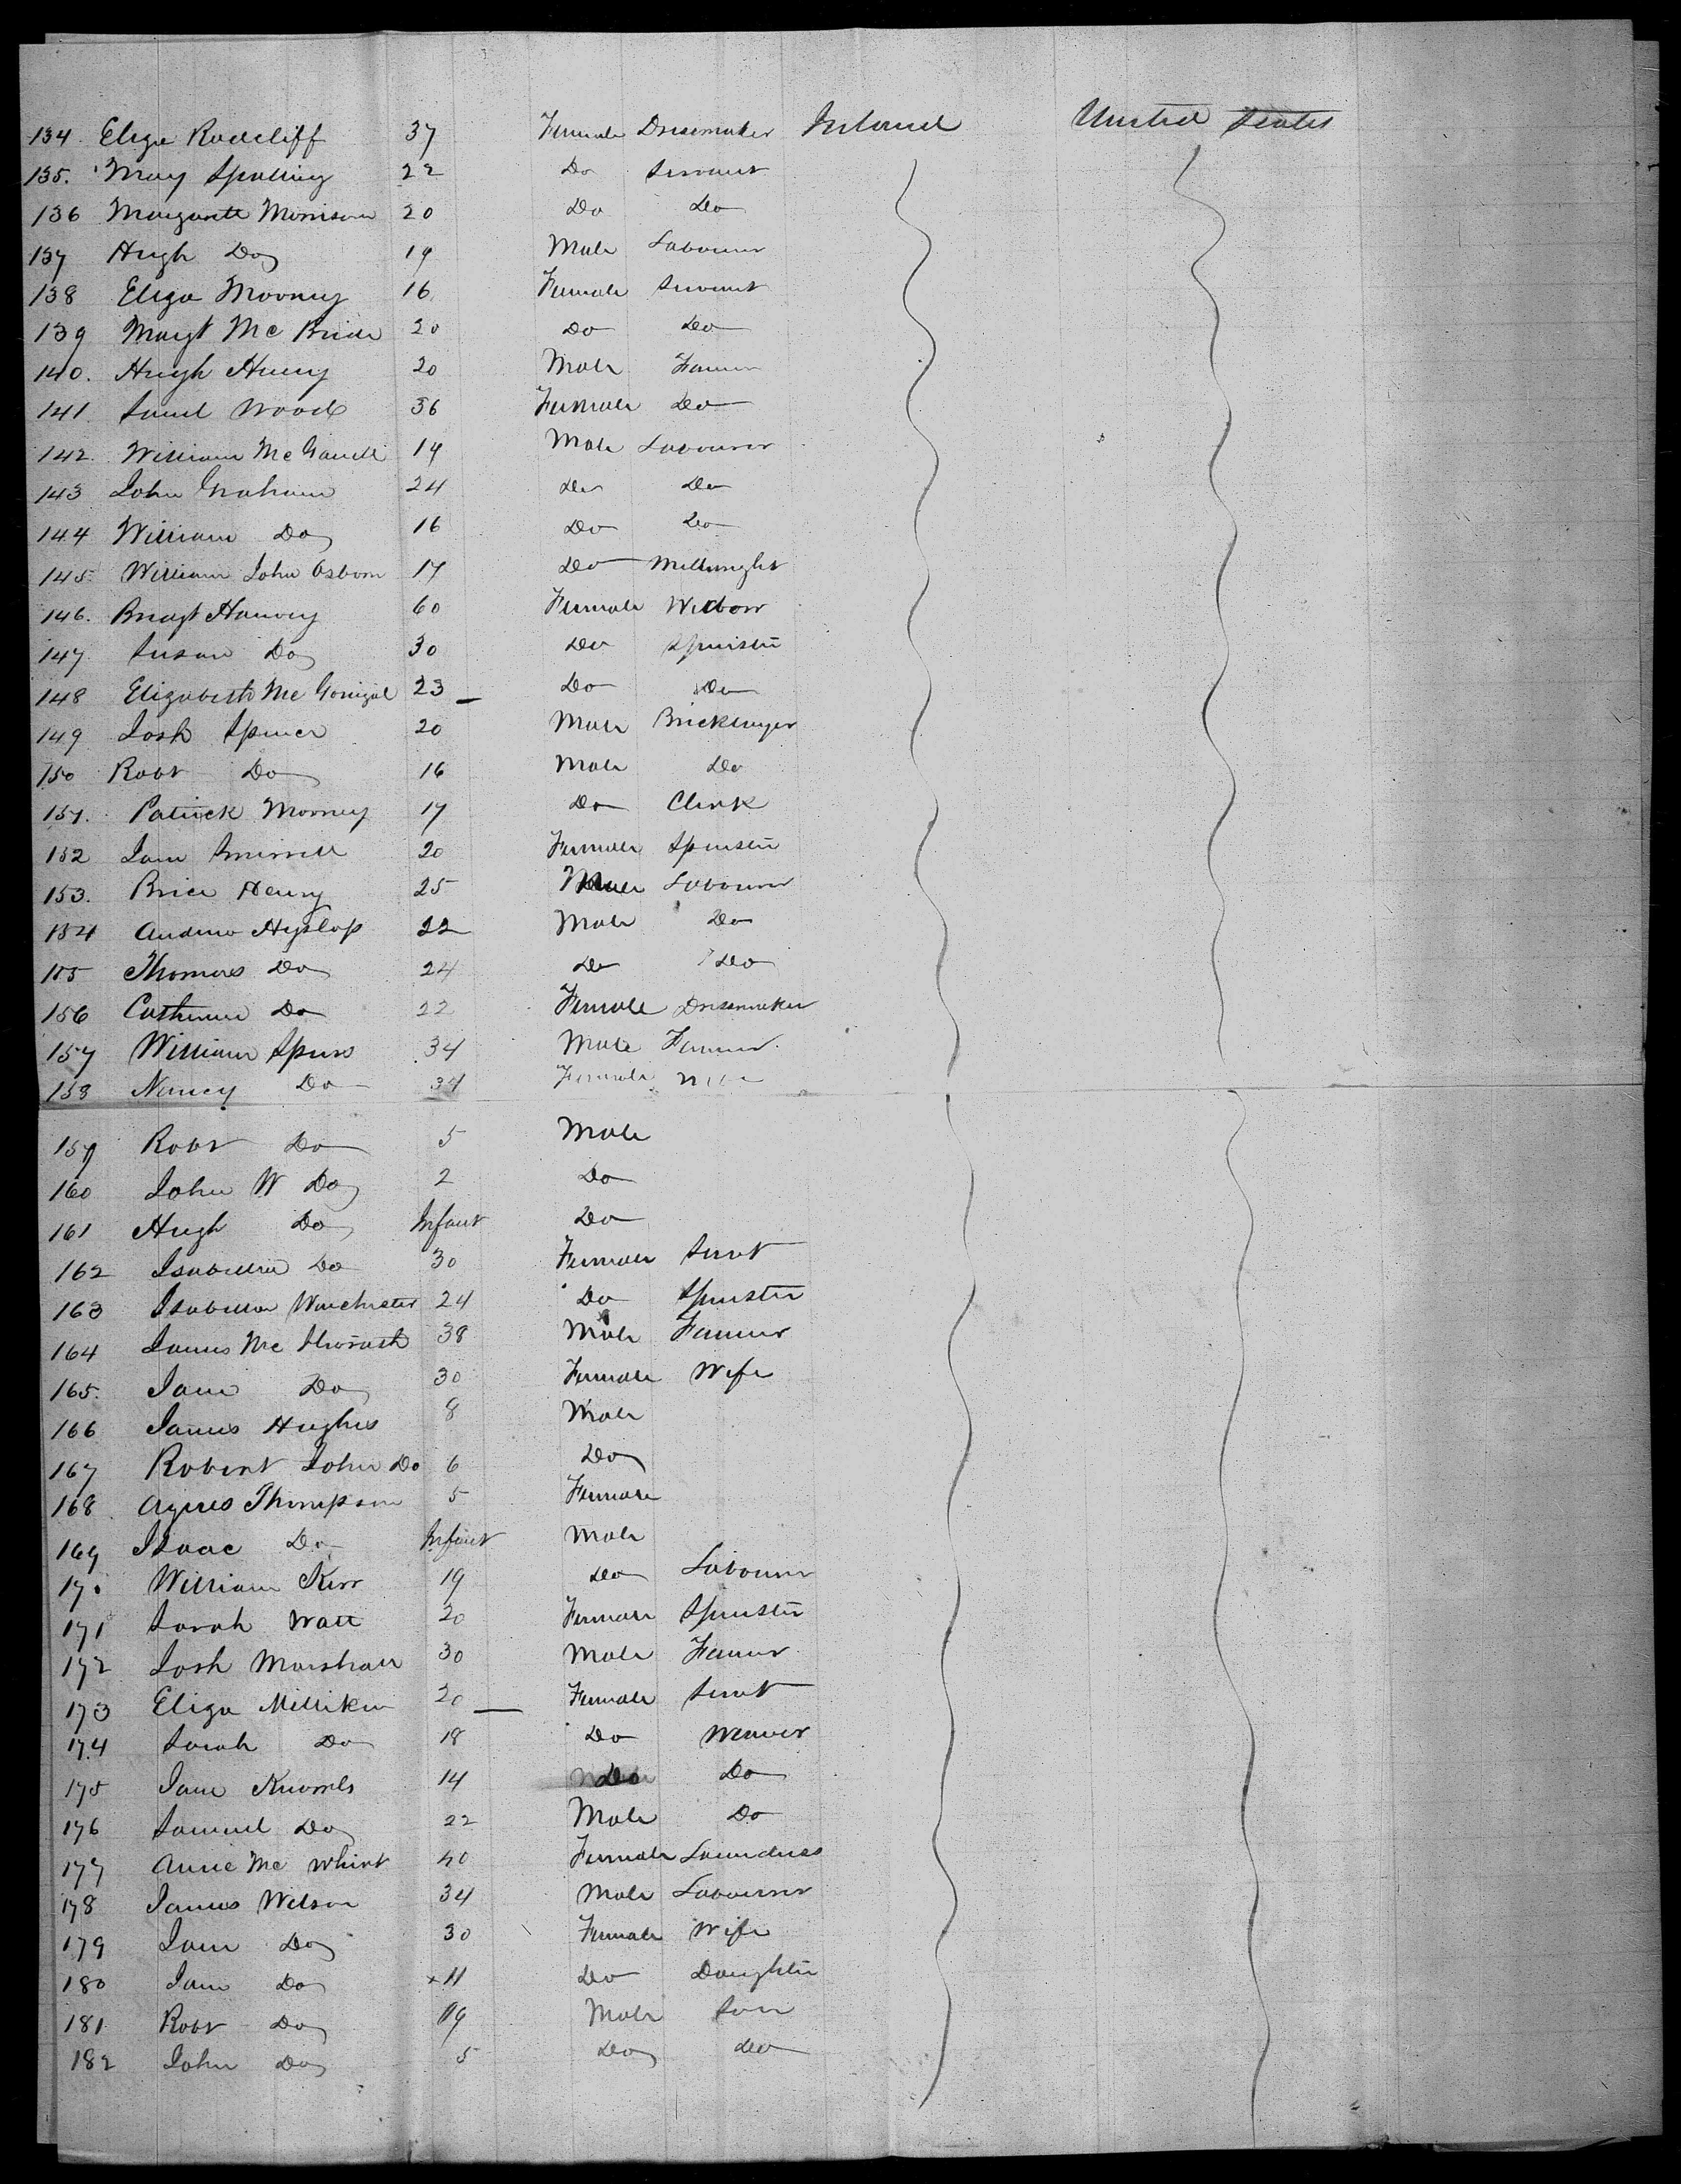 134. Eliza Radcliff 37 Female Dressmaker Ireland United States
135. Mary Spalling 22 Do Servant
136 Margarett Morrison 20 Do Do
137 Hugh Do 19 Male Labourer
138 Eliza Mooney 16 Female Servant
139 Margt Mc Bride 20 Do Do
140. Hugh Henry 20 Male Farmer
141. Saml Wood 36 Female Do
142. William Mc 19 Male Labourer
143 John Graham 24 Do Do
144 William Do 16 Do Do
145. William John Osborn 17 Do Millwright
146. Harvey 60 Female Widow
147 Susan Do 30 Do Spinster
148 Elizabeth Mc Gonigal 23 Do Do
149 Josh Spence 20 Male Bricklayer
150 Robt Do 16 Male Do
151. Patrick Mooney 17 Do Clerk
152 Jane 20 Female Spinster
153. Brice Henry 25 Male Labourer
154 Andrew Hyslop 22 Male Do
155 Thomas Do 24 Do Do
156 Catherine Do 22 Female Dressmaker
157 William Spiers 34 Male Farmer
158 Nancy Do 34 Female
159 Robt Do 5 Male
160 John W Do 2 Do
161 Hugh Do Infant Do
162 Isabella Do 30 Female Servt
163 Isabella Winchester 24 Do Spinster
164 James Mc 38 Male Farmer
165. Jane Do 30 Female Wife
166 James Hughes 8 Male
167 Robert John Do 6 Do
168. Agnes Thompson 5 Female
169 Isaac Do Infant Male
170 William Kerr 19 Do Labourer
171 Sarah Watt 20 Female Spinster
172 Josh Marshall 30 Male Farmer
173 Eliza Milliken 20 Female Servt
174 Sarah Do 18 Do Weaver
175 Jane Knowels 14 Do Do
176 Samuel Do 22 Male Do
177 Annie Mc Whirt 40 Female Laundress
178 James Wilson 34 Male Labourer
179 Jane Do 30 Female Wife
180 Jane Do 11 Do Daughter
181 Robt Do 9 Male Son
182 John Do 5 Do Do